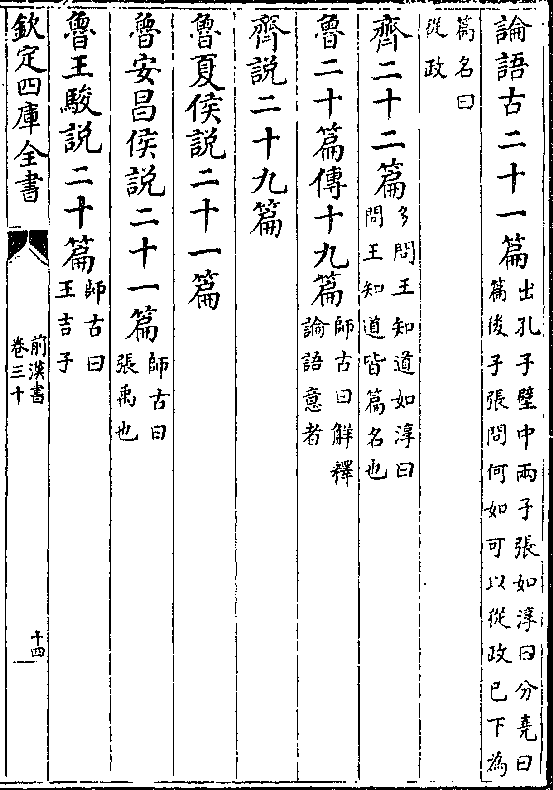 論語古二十一篇出孔子壁中兩子張如淳曰分堯曰篇後子張問何如可以從政已下為
篇名曰從政
齊二十二篇多問王知道如淳曰問王知道皆篇名也
魯二十篇傳十九篇師古曰解釋論語意者
齊説二十九篇
魯夏侯説二十一篇
魯安昌侯説二十一篇師古曰張禹也
魯王駿説二十篇師古曰王吉子
欽定四庫全書 前漢書卷三十 十四